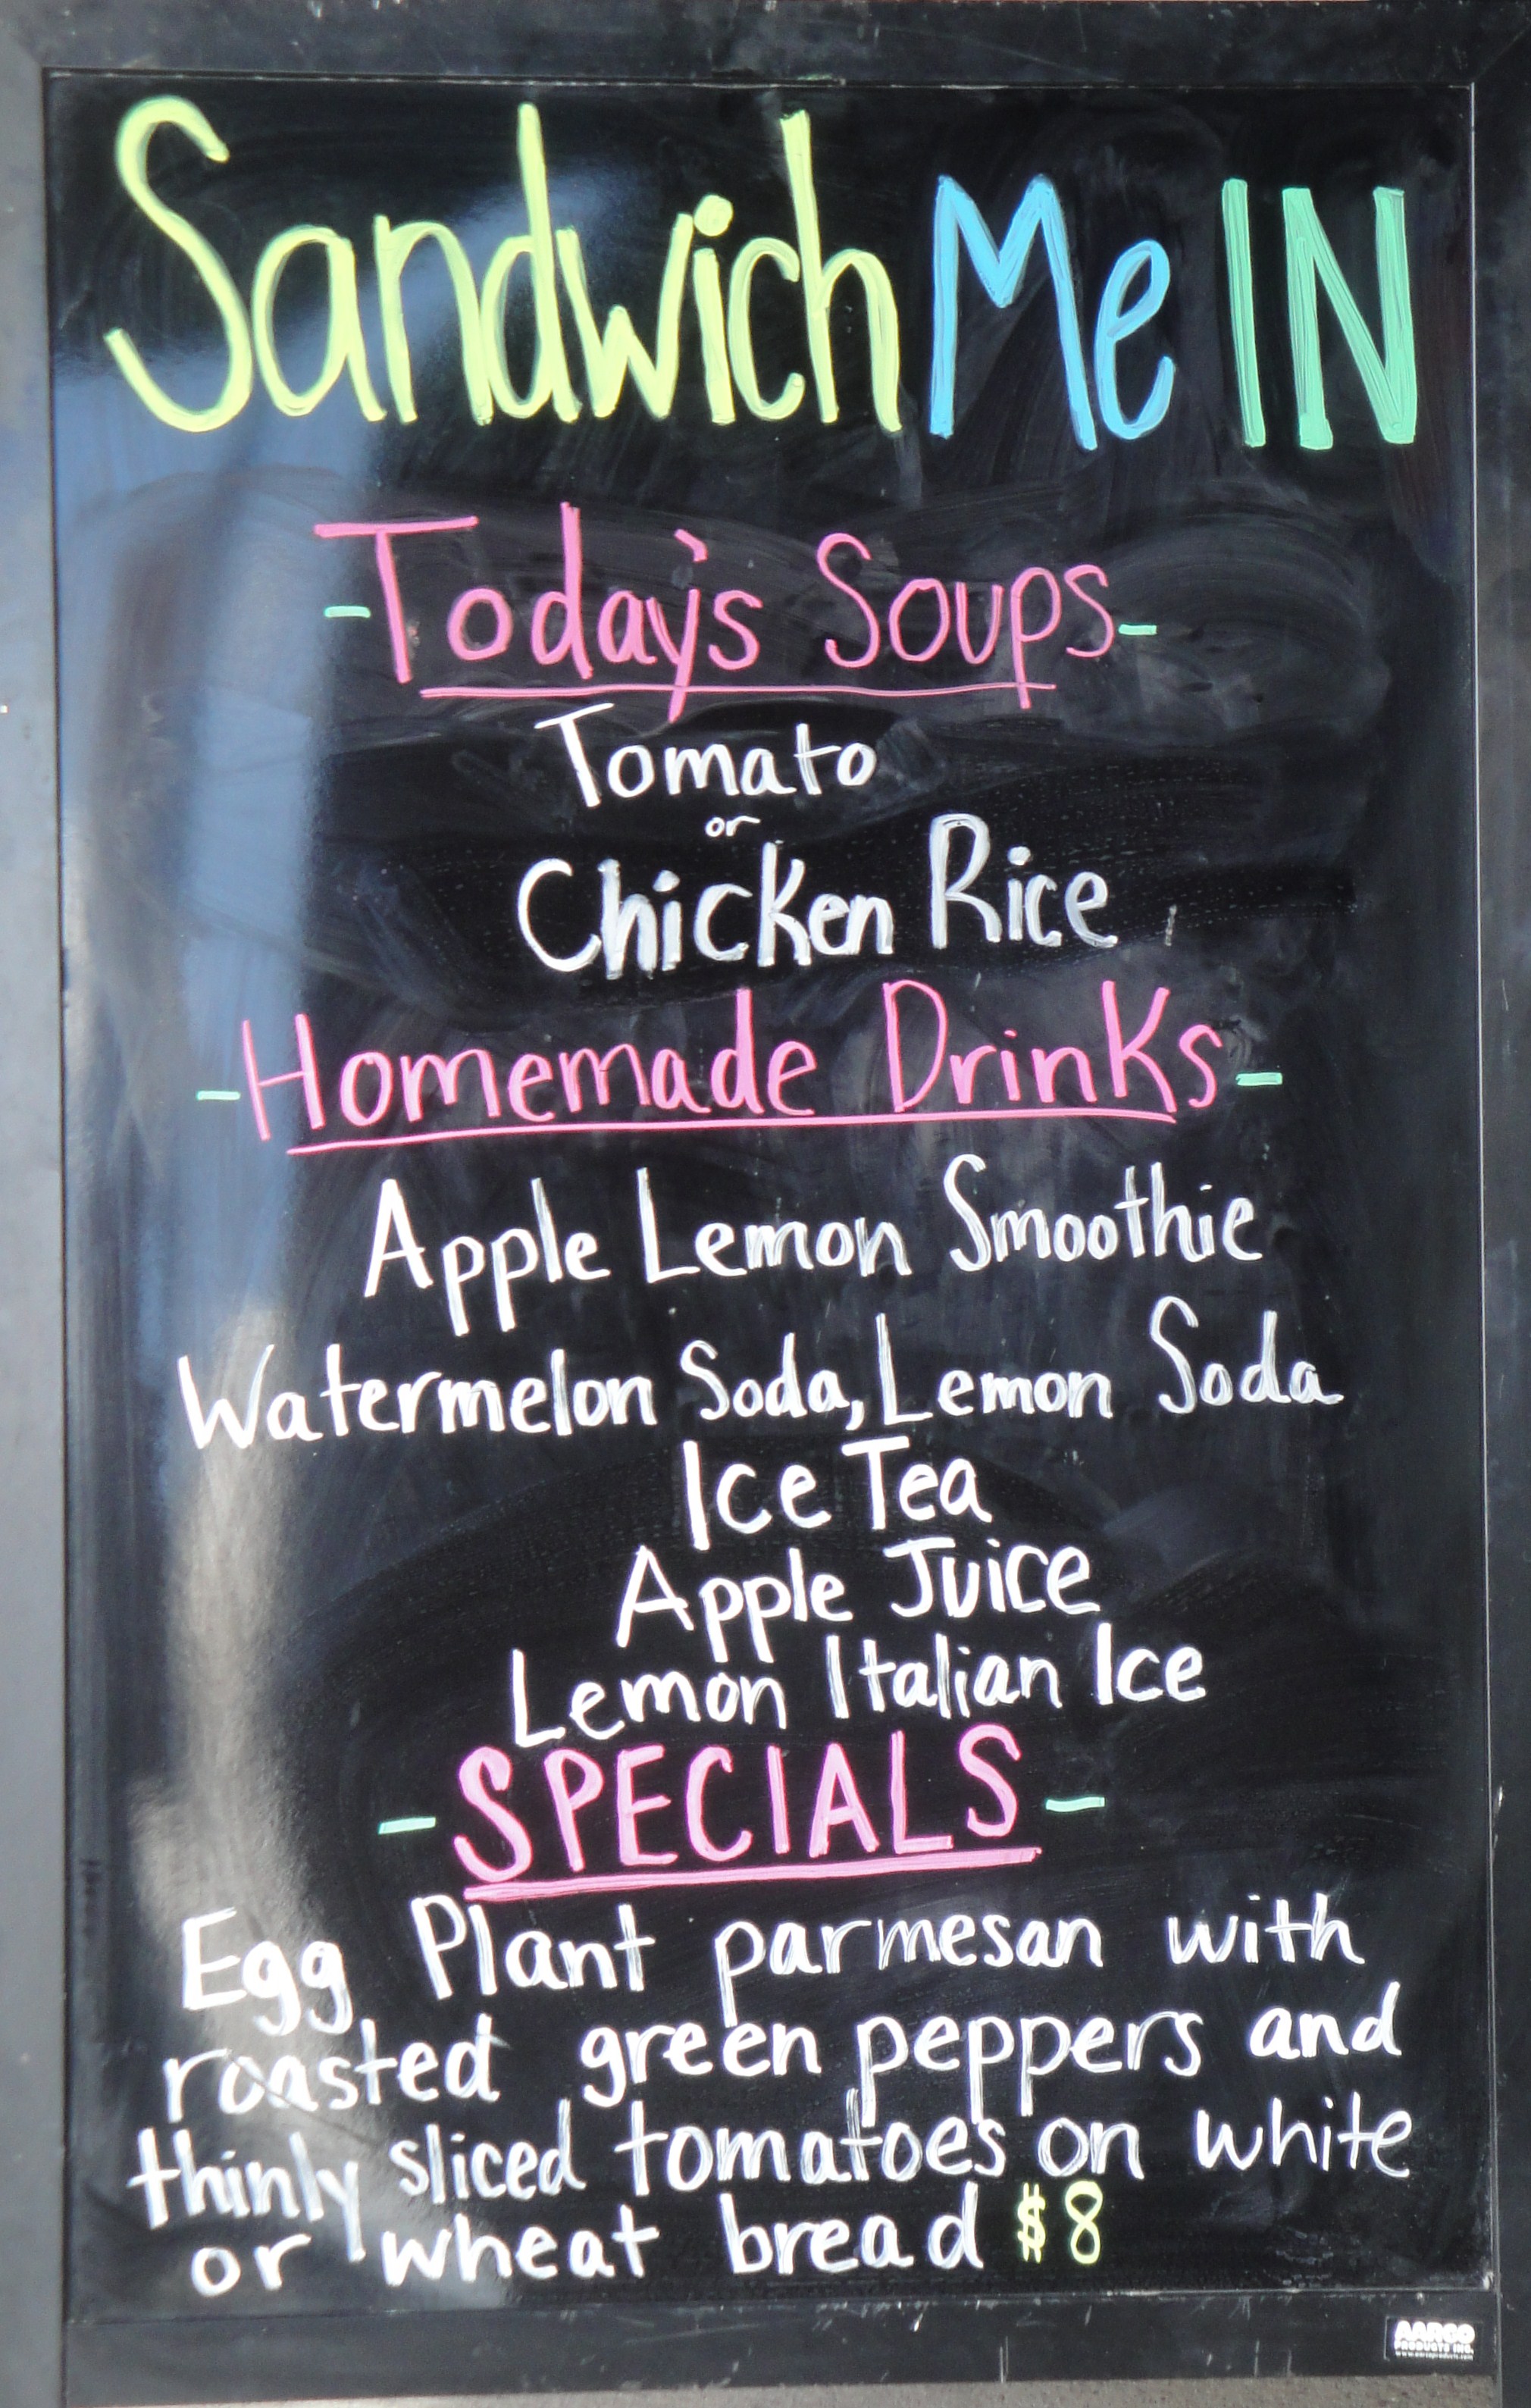 Sandwich Me IN
-Today's Soups-
Tomato
or
Chicken Rice
-Homemade Drinks-
Apple Lemon Smoothie
Watermelon Soda, Lemon Soda
Ice Tea
Apple Juice
Lemon Italian Ice
-SPECIALS-
Egg Plant parmesan with
roasted green peppers and
thinly sliced tomatoes on white
or wheat bread $8
AARCO
PRODUCTS INC.
www.aarcoproducts.com